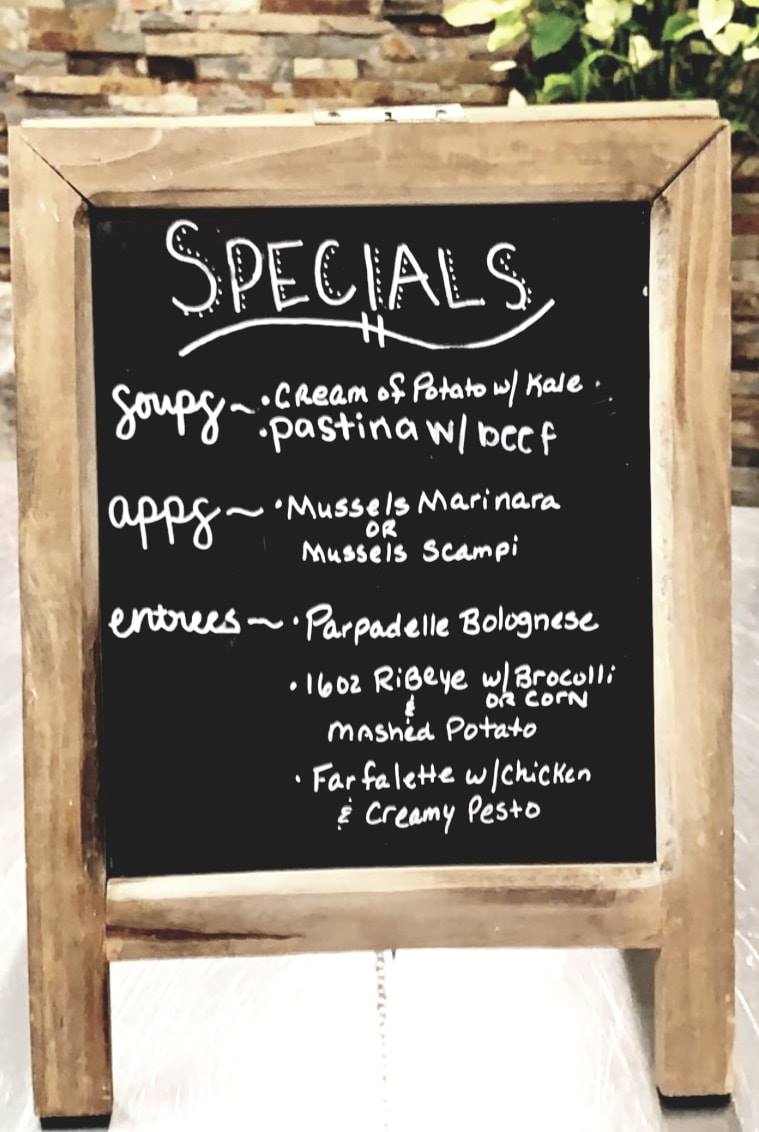 SPECIALS
soups ~ • Cream of Potato w/ Kale •
• pastina w/ beef
apps ~ • Mussels Marinara
OR
Mussels Scampi
entrees ~ • Parpadelle Bolognese
• 16oz RiBeye w/ Brocolli
OR CORN
&
Mashed Potato
• Farfalette w/ Chicken
& Creamy Pesto